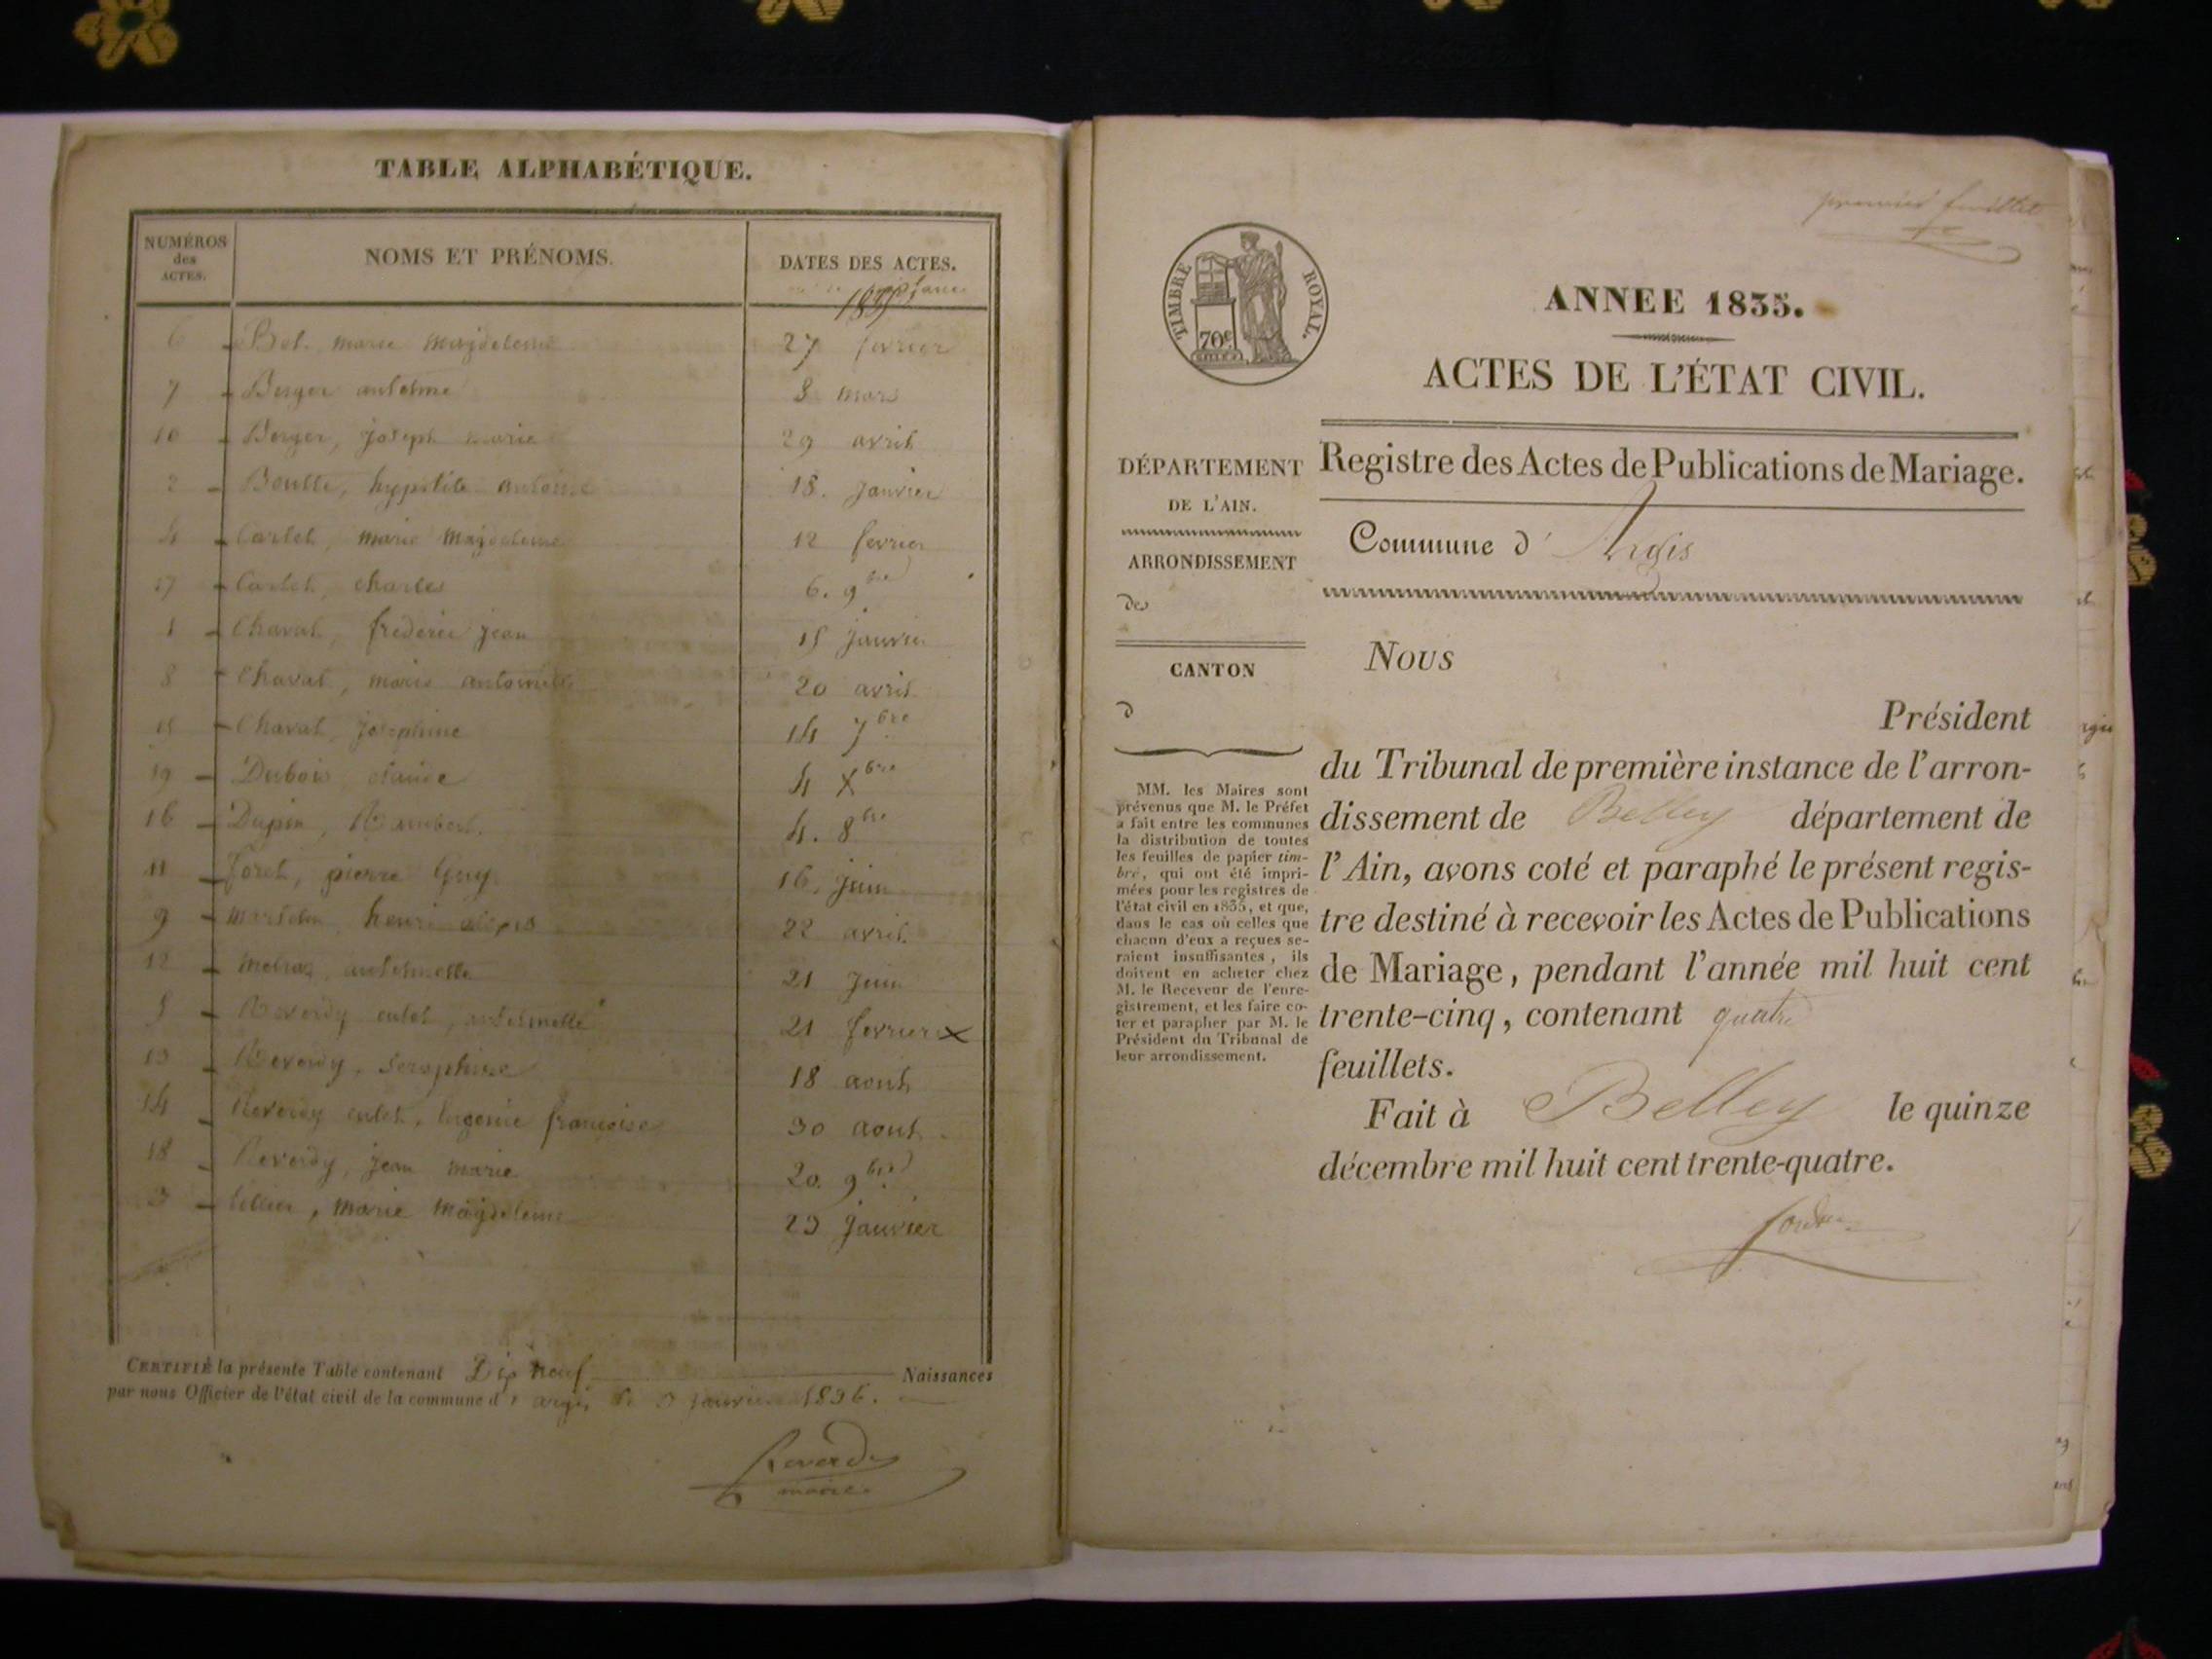 TABLE ALPHABÉTIQUE.
NUMÉROS des ACTES. NOMS ET PRÉNOMS. DATES DES ACTES.
1835
6 Bot. marie magdeleine 27 fevrier
7 Berger antelme 8 mars
10 Berger, joseph marie 29 avril
2 hypolite antoine 18. janvier
4 Carlet, marie magdeleine 12 fevrier
17 Carlet, charles 6. 9bre
1 Chavat, frederic jean 15 janvier
8 Chavat, marie antoinette 20 avril
15 Chavat, josephine 14 7bre
19 Dubois claude 4 Xbre
16 Dupin, Rambert. 4. 8bre
11 foret, pierre Guy 16. juin
9 henri 22 avril
12 antelmette 21 juin
5 Reverdy culet, antelmette 21 fevrier X
13 Reverdy, Seraphine 18 aout
14 Reverdy culet, Eugenie françoise 30 aout
18 Reverdy, jean marie 20. 9bre
3 marie magdeleine 23 janvier
CERTIFIÉ la présente Table contenant Dix neuf Naissances
par nous Officier de l'état civil de la commune d'argis le 3 janvier 1836.
Reverdy
maire
premier feuillet
TIMBRE ROYAL.
70c
ANNEE 1835.
ACTES DE L'ÉTAT CIVIL.
Registre des Actes de Publications de Mariage.
DÉPARTEMENT
DE L'AIN.
ARRONDISSEMENT
de
CANTON
d
MM. les Maires sont
prévenus que M. le Préfet
a fait entre les communes
la distribution de toutes
les feuilles de papier tim-
bré, qui ont été impri-
mées pour les registres de
l'état civil en 1835, et que,
dans le cas où celles que
chacun d'eux a reçues se-
raient insuffisantes, ils
doivent en acheter chez
M. le Receveur de l'enre-
gistrement, et les faire co-
ter et parapher par M. le
Président du Tribunal de
leur arrondissement.
Commune d'Argis
Nous
Président
du Tribunal de première instance de l'arron-
dissement de Belley département de
l'Ain, avons coté et paraphé le présent regis-
tre destiné à recevoir les Actes de Publications
de Mariage, pendant l'année mil huit cent
trente-cinq, contenant quatre
feuillets.
Fait à Belley le quinze
décembre mil huit cent trente-quatre.